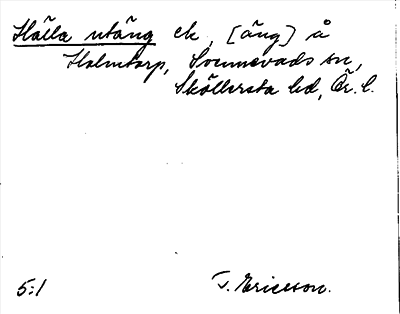 Hälla utäng ek, [äng] å
Holmtorp, Svennevads sn,
Sköllersta hd, Ör. l.
5:1 T. Ericsson.